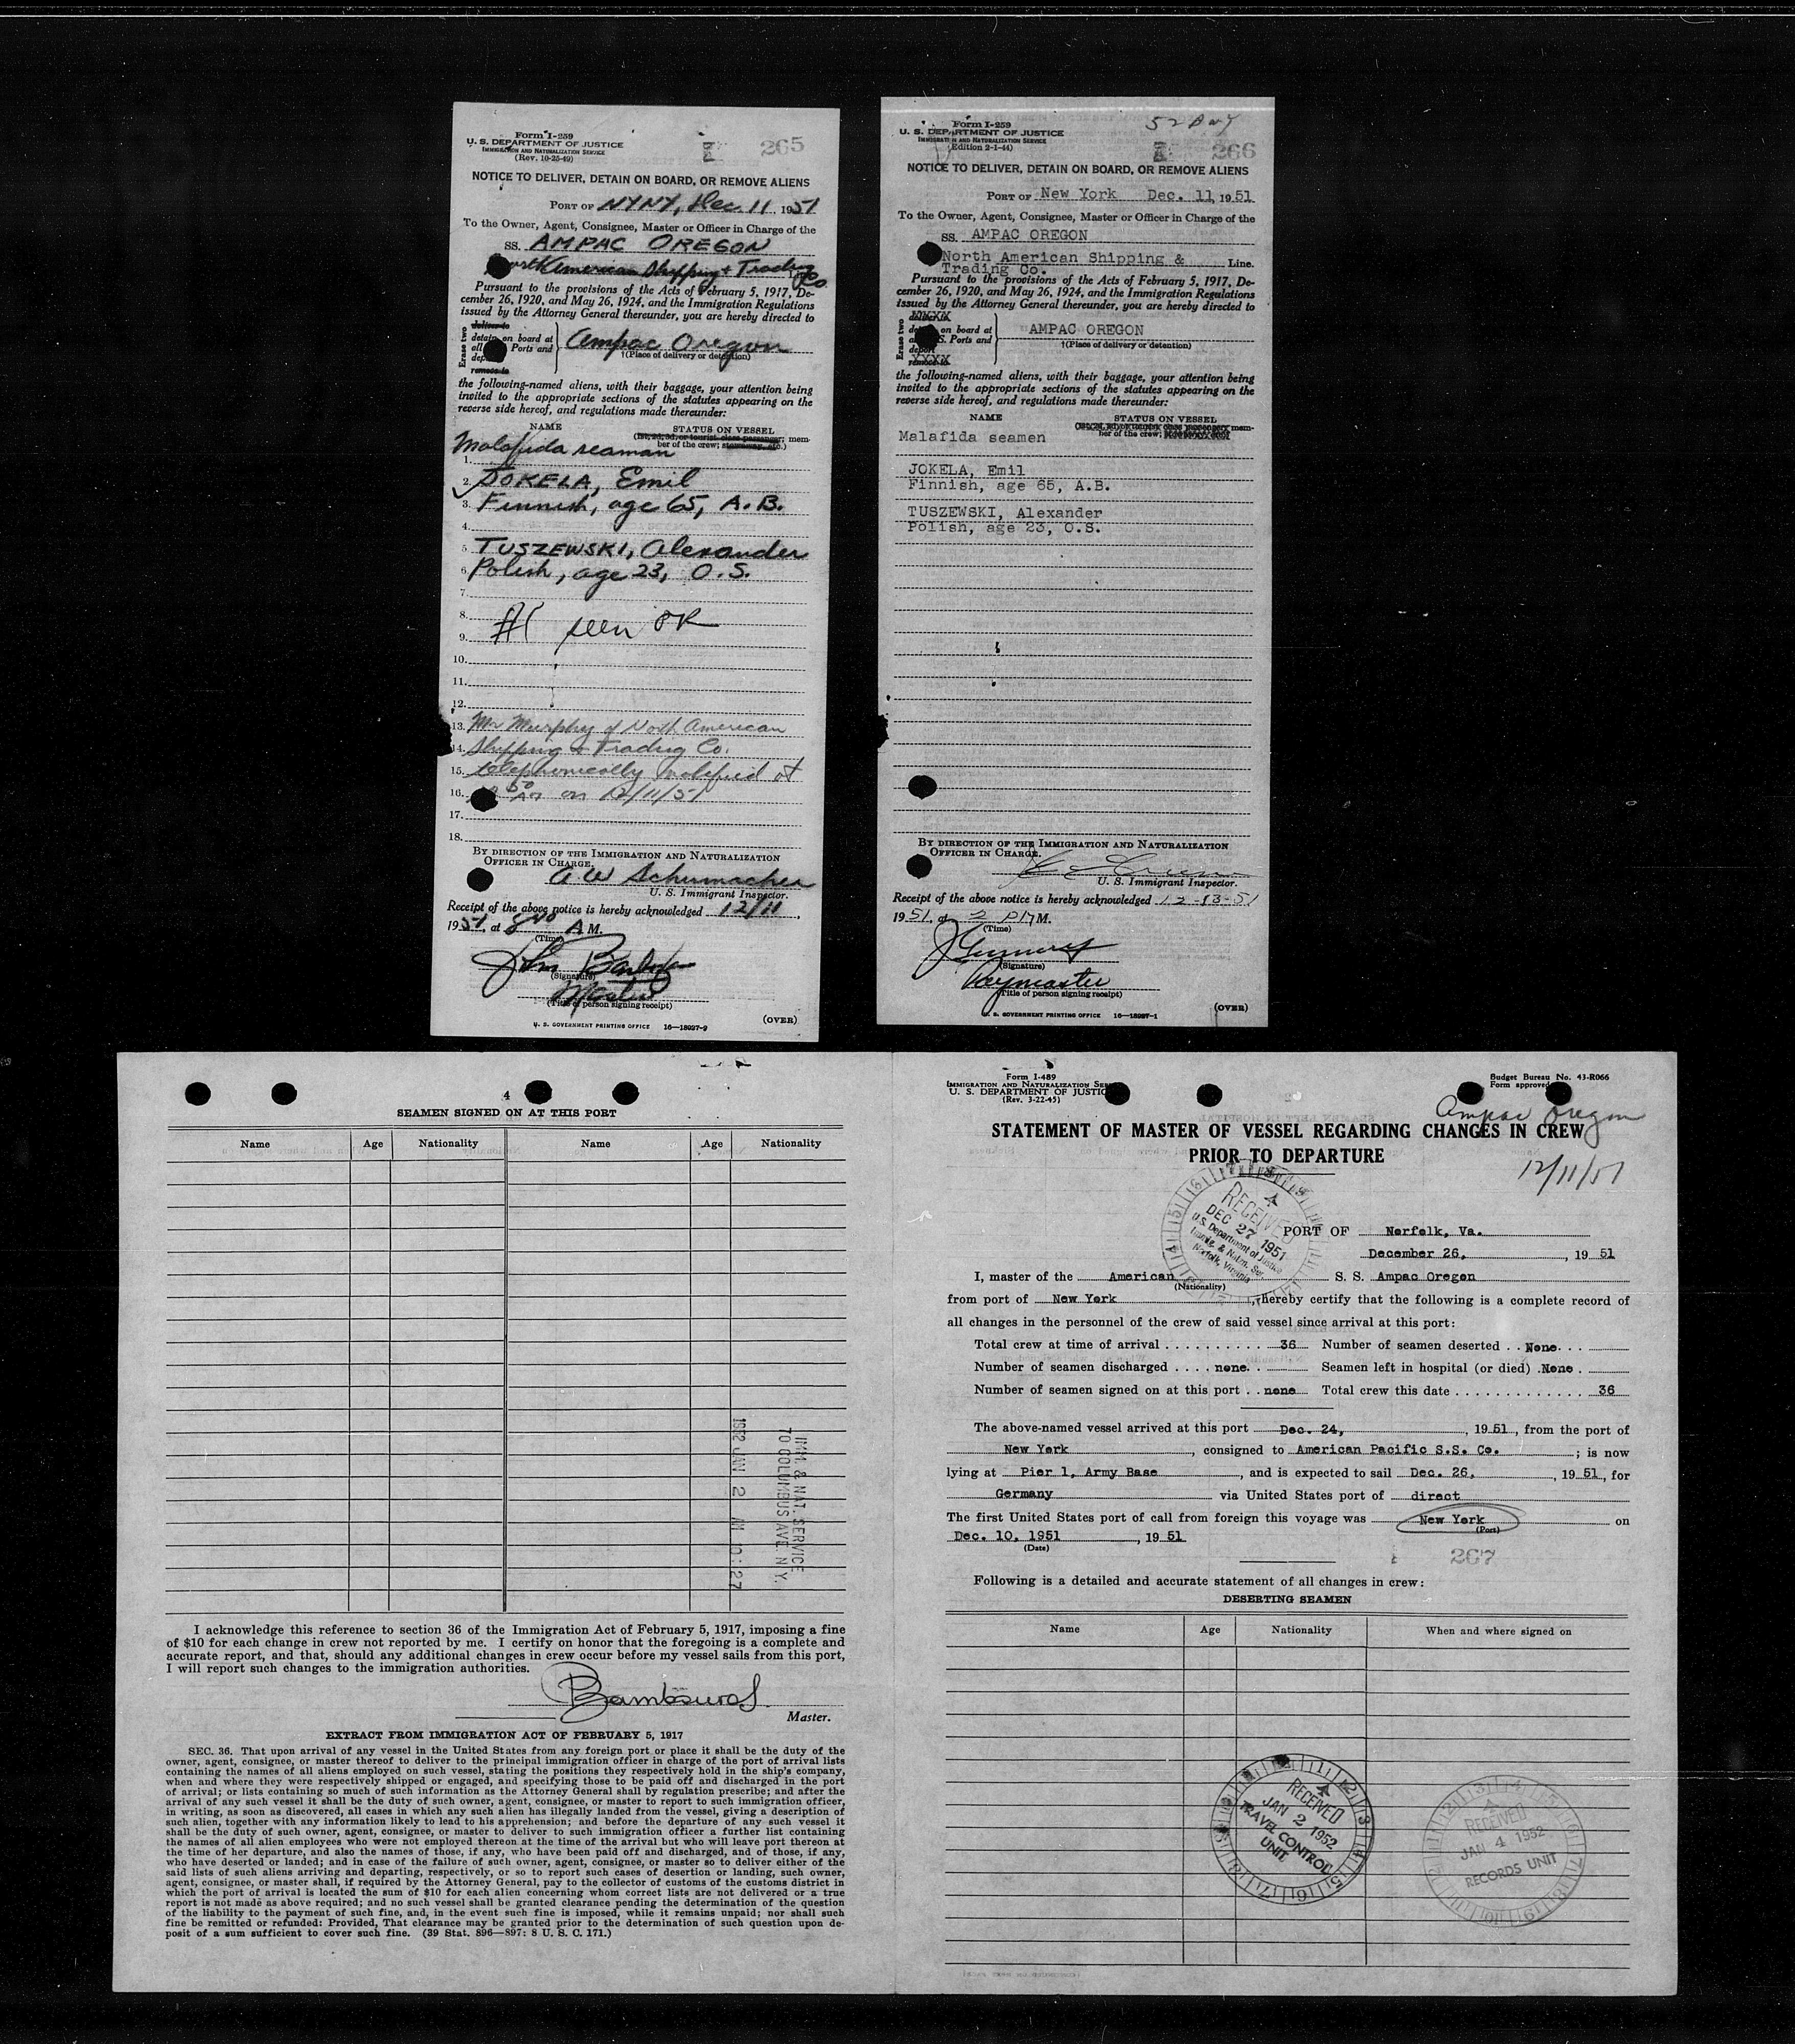 Form I-259
U. S. DEPARTMENT OF JUSTICE
IMMIGRATION AND NATURALIZATION SERVICE
(Rev. 10-25-49)
265
NOTICE TO DELIVER, DETAIN ON BOARD, OR REMOVE ALIENS
PORT OF NYNY, Dec. 11, 1951
To the Owner, Agent, Consignee, Master or Officer in Charge of the
SS. AMPAC OREGON
North American Shipping & Trading Co.
Pursuant to the provisions of the Acts of February 5, 1917, De-
cember 26, 1920, and May 26, 1924, and the Immigration Regulations
issued by the Attorney General thereunder, you are hereby directed to
Erase two
deliver to
detain on board at
all Ports and
remove to
Ampac Oregon
†(Place of delivery or detention)
the following-named aliens, with their baggage, your attention being
invited to the appropriate sections of the statutes appearing on the
reverse side hereof, and regulations made thereunder:
NAME
STATUS ON VESSEL
(1st, 2d, 3d, or tourist class passenger; mem-
ber of the crew; stowaway, etc.)
Malafida seaman
1.
2. JOKELA, Emil
3. Finnish, age 65, A.B.
4.
5. TUSZEWSKI, Alexander
6. Polish, age 23, O.S.
7.
8.
9. #1 seen OK
10.
11.
12.
13. Mr Murphy of North American
14. Shipping & Trading Co.
15. telephonically notified at
16. on 12/11/51
17.
18.
BY DIRECTION OF THE IMMIGRATION AND NATURALIZATION
OFFICER IN CHARGE.
A W Schumacher
U. S. Immigrant Inspector.
Receipt of the above notice is hereby acknowledged 12/11,
1951, at 8 A M.
(Time)
John
(Signature)
Master
(Title of person signing receipt)
U. S. GOVERNMENT PRINTING OFFICE 16—18927-2
(OVER)
Form I-259
U. S. DEPARTMENT OF JUSTICE
IMMIGRATION AND NATURALIZATION SERVICE
(Edition 2-1-44)
266
NOTICE TO DELIVER, DETAIN ON BOARD, OR REMOVE ALIENS
PORT OF New York Dec. 11, 1951
To the Owner, Agent, Consignee, Master or Officer in Charge of the
SS. AMPAC OREGON
North American Shipping &
Trading Co. Line.
Pursuant to the provisions of the Acts of February 5, 1917, De-
cember 26, 1920, and May 26, 1924, and the Immigration Regulations
issued by the Attorney General thereunder, you are hereby directed to
Erase two
XXXX
on board at
S. Ports and
deport
XXXX
AMPAC OREGON
†(Place of delivery or detention)
the following-named aliens, with their baggage, your attention being
invited to the appropriate sections of the statutes appearing on the
reverse side hereof, and regulations made thereunder:
NAME
STATUS ON VESSEL
mem-
ber of the crew;
Malafida seamen
JOKELA, Emil
Finnish, age 65, A.B.
TUSZEWSKI, Alexander
Polish, age 23, O.S.
BY DIRECTION OF THE IMMIGRATION AND NATURALIZATION
OFFICER IN CHARGE.
U. S. Immigrant Inspector.
Receipt of the above notice is hereby acknowledged 12-13-51
1951, at 2 P M.
(Time)
(Signature)
Paymaster
(Title of person signing receipt)
U. S. GOVERNMENT PRINTING OFFICE 16—18927-1
(OVER)
4
SEAMEN SIGNED ON AT THIS PORT
Name Age Nationality Name Age Nationality
IMM. & NAT. SERVICE
70 COLUMBUS AVE. N.Y.
1952 JAN 2 AM 10:27
I acknowledge this reference to section 36 of the Immigration Act of February 5, 1917, imposing a fine
of $10 for each change in crew not reported by me. I certify on honor that the foregoing is a complete and
accurate report, and that, should any additional changes in crew occur before my vessel sails from this port,
I will report such changes to the immigration authorities.
Master.
EXTRACT FROM IMMIGRATION ACT OF FEBRUARY 5, 1917
SEC. 36. That upon arrival of any vessel in the United States from any foreign port or place it shall be the duty of the
owner, agent, consignee, or master thereof to deliver to the principal immigration officer in charge of the port of arrival lists
containing the names of all aliens employed on such vessel, stating the positions they respectively hold in the ship's company,
when and where they were respectively shipped or engaged, and specifying those to be paid off and discharged in the port
of arrival; or lists containing so much of such information as the Attorney General shall by regulation prescribe; and after the
arrival of any such vessel it shall be the duty of such owner, agent, consignee, or master to report to such immigration officer,
in writing, as soon as discovered, all cases in which any such alien has illegally landed from the vessel, giving a description of
such alien, together with any information likely to lead to his apprehension; and before the departure of any such vessel it
shall be the duty of such owner, agent, consignee, or master to deliver to such immigration officer a further list containing
the names of all alien employees who were not employed thereon at the time of the arrival but who will leave port thereon at
the time of her departure, and also the names of those, if any, who have been paid off and discharged, and of those, if any,
who have deserted or landed; and in case of the failure of such owner, agent, consignee, or master so to deliver either of the
said lists of such aliens arriving and departing, respectively, or so to report such cases of desertion or landing, such owner,
agent, consignee, or master shall, if required by the Attorney General, pay to the collector of customs of the customs district in
which the port of arrival is located the sum of $10 for each alien concerning whom correct lists are not delivered or a true
report is not made as above required; and no such vessel shall be granted clearance pending the determination of the question
of the liability to the payment of such fine, and, in the event such fine is imposed, while it remains unpaid; nor shall such
fine be remitted or refunded: Provided, That clearance may be granted prior to the determination of such question upon de-
posit of a sum sufficient to cover such fine. (39 Stat. 896—897: 8 U. S. C. 171.)
Form I-489
IMMIGRATION AND NATURALIZATION
U. S. DEPARTMENT OF JUSTICE
(Rev. 3-22-45)
Budget Bureau No. 43-R066
Form approved
Ampac Oregon
STATEMENT OF MASTER OF VESSEL REGARDING CHANGES IN CREW
PRIOR TO DEPARTURE
12/11/51
RECEIVED
DEC 27 1951
U.S. Department of Justice
Immig. & Natzn. Ser.
Norfolk, Virginia
PORT OF Norfolk, Va.
December 26, 1951
I, master of the American S. S. Ampac Oregon
(Nationality)
from port of New York, hereby certify that the following is a complete record of
all changes in the personnel of the crew of said vessel since arrival at this port:
Total crew at time of arrival 36 Number of seamen deserted None
Number of seamen discharged none Seamen left in hospital (or died) None
Number of seamen signed on at this port none Total crew this date 36
The above-named vessel arrived at this port Dec. 24, 1951, from the port of
New York, consigned to American Pacific S.S. Co.; is now
lying at Pier 1, Army Base, and is expected to sail Dec. 26, 1951, for
Germany via United States port of direct
The first United States port of call from foreign this voyage was New York on
(Port)
Dec. 10, 1951, 1951
(Date)
267
Following is a detailed and accurate statement of all changes in crew:
DESERTING SEAMEN
Name Age Nationality When and where signed on
RECEIVED
JAN 2 1952
TRAVEL CONTROL
UNIT
RECEIVED
JAN 4 1952
RECORDS UNIT